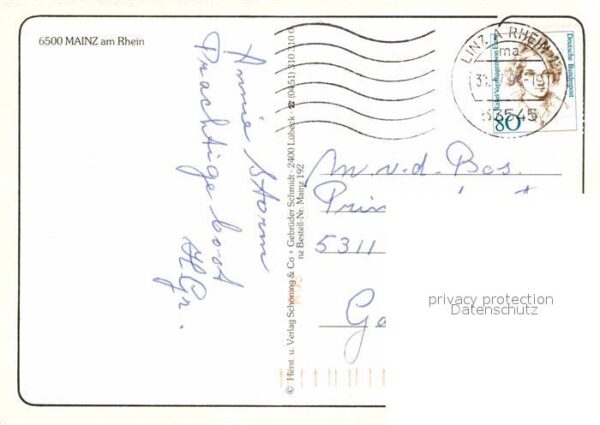 6500 MAINZ am Rhein
Annie Storm
Prachtige boot
HGr.
© Herst. u. Verlag Schöning & Co + Gebrüder Schmidt · 2400 Lübeck · ☎ (0451) 310 310
Bestell-Nr. Mainz 192
LINZ A RHEIN
ma
53545
Deutsche Bundespost
80
m.v.d. Bos.
Prin
5311
Ge
privacy protection
Datenschutz